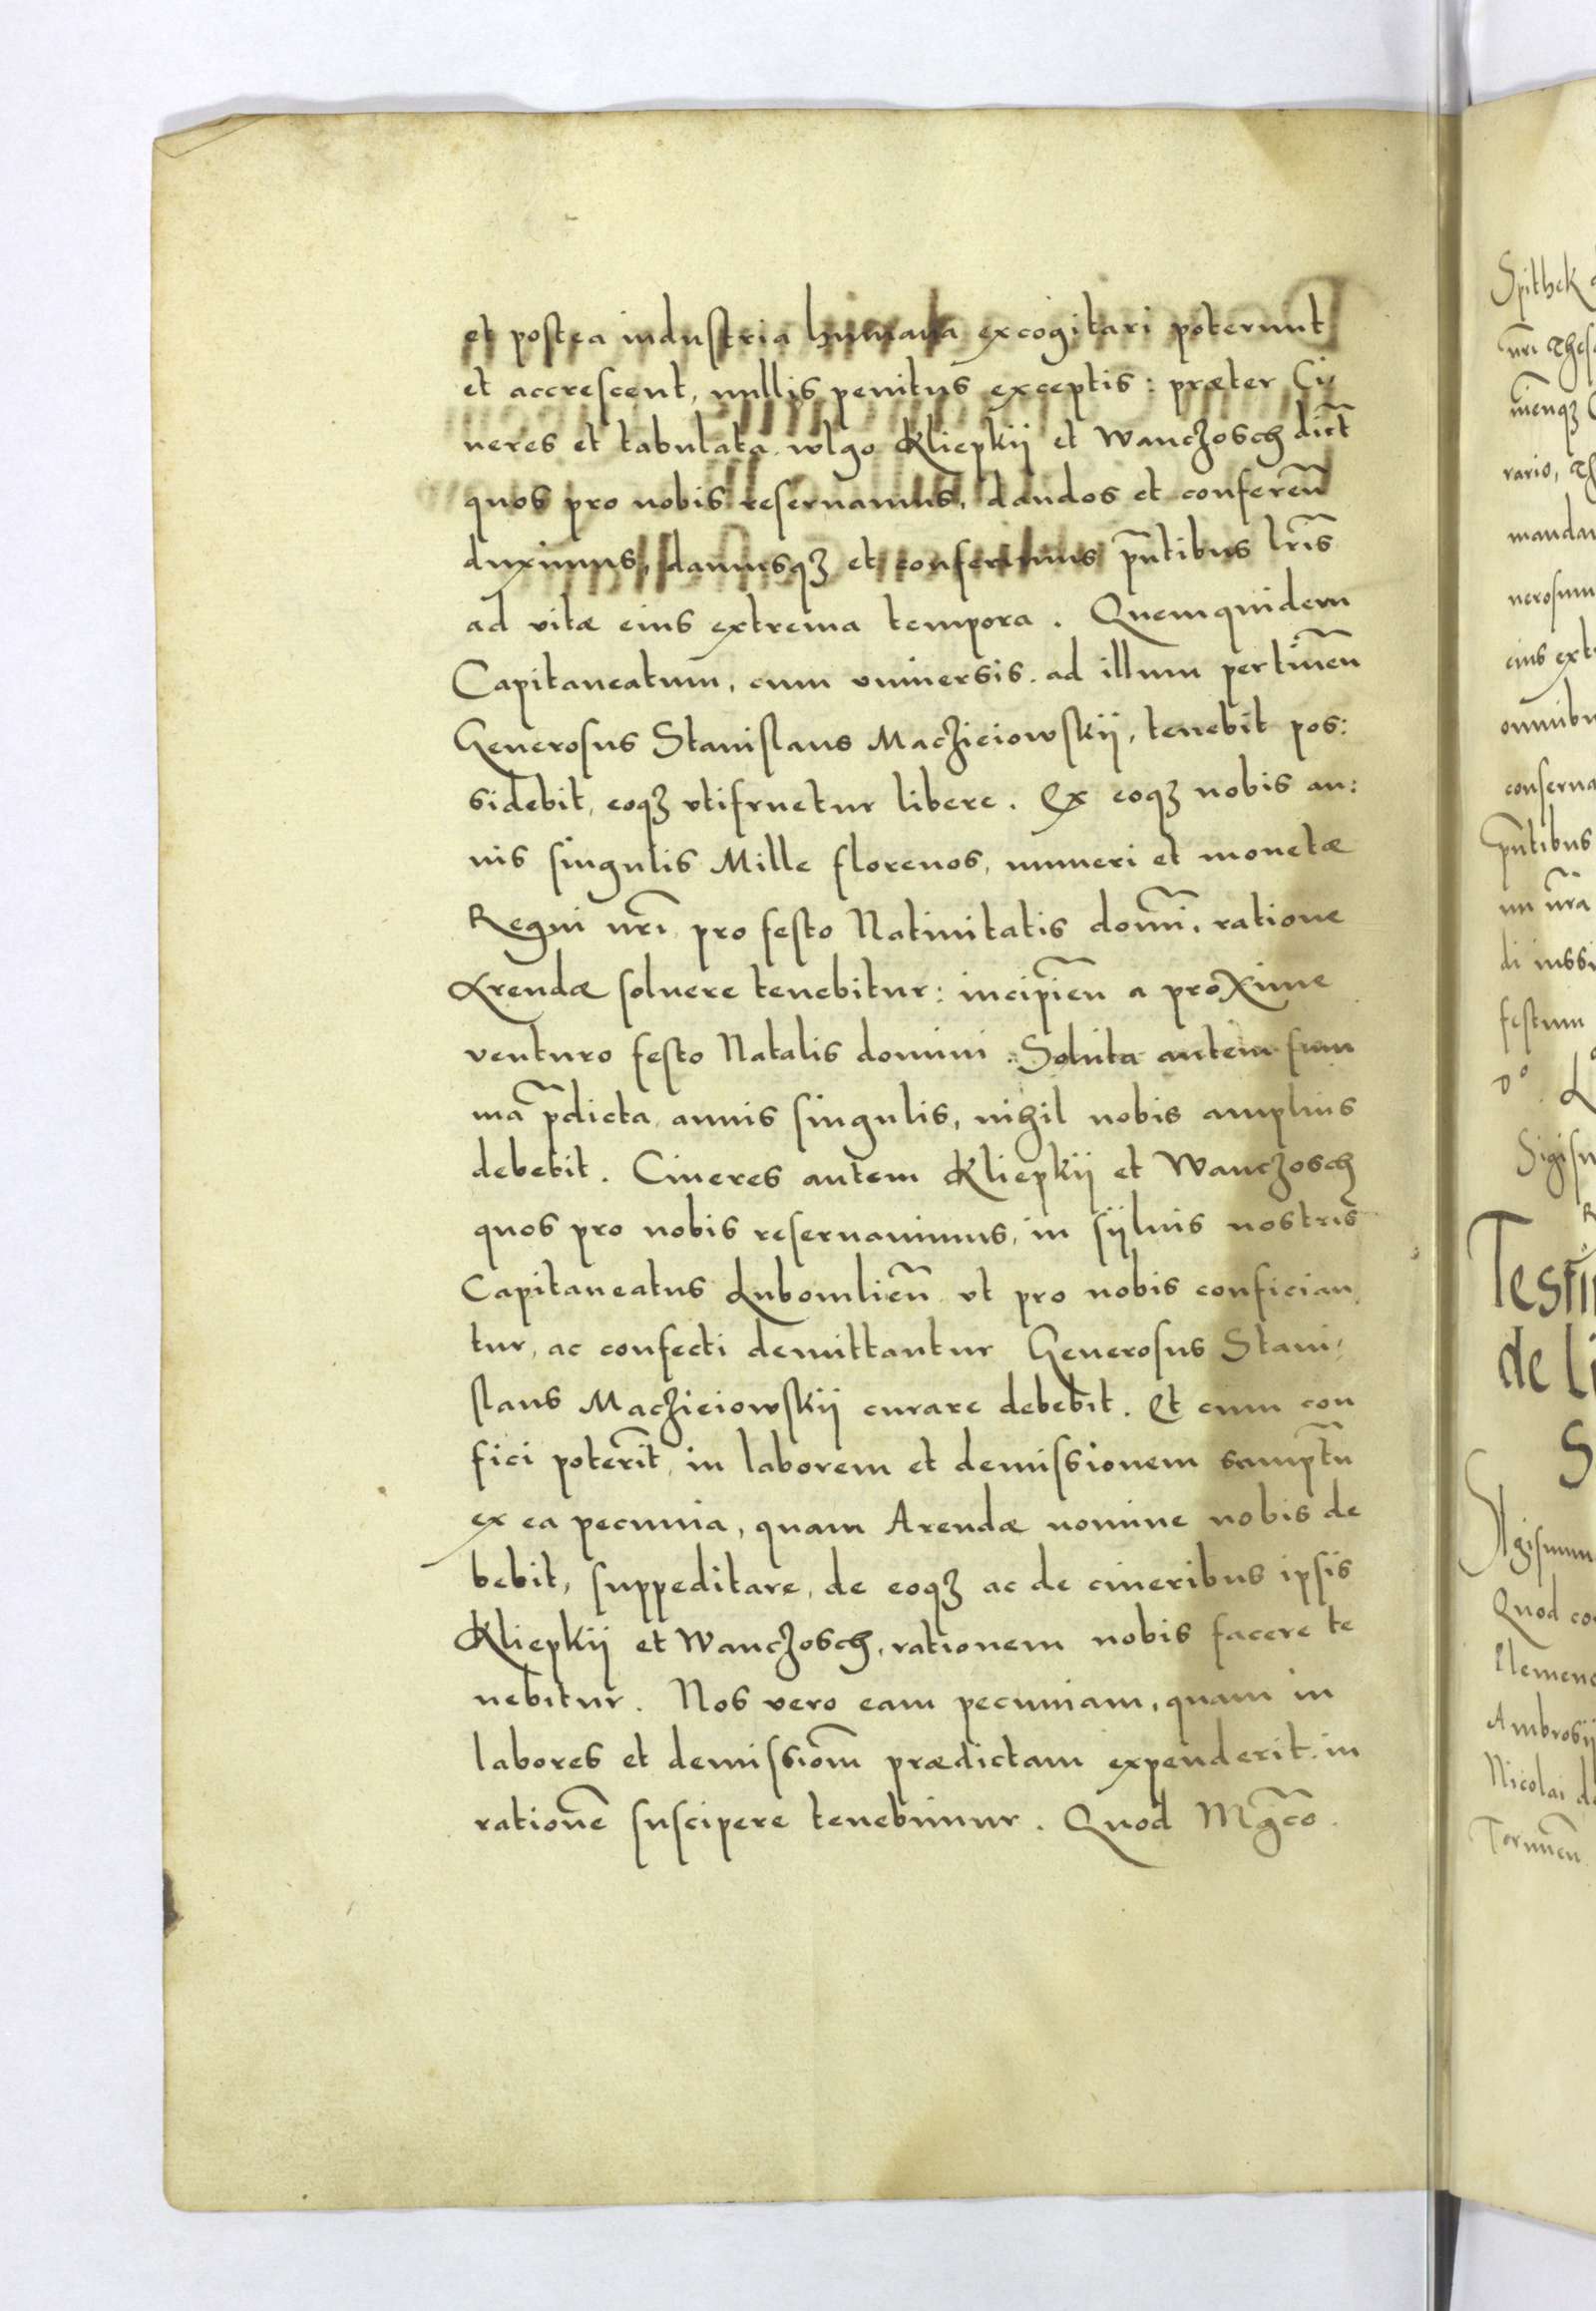 et postea industria humana excogitari poterunt
et accrescent, nullis penitus exceptis: præter Ci
neres et tabulata wlgo Kliepkij et Wanczosch dict̃
quos pro nobis reseruamus, dandos et conferen̄
duximus, damusqꝫ et conferimus pñtibus lrĩs
ad vitæ eius extrema tempora. Quemquidem
Capitaneatum, cum vniuersis ad illum pertineñ
Generosus Stanislaus Macziciowskij, tenebit pos:
sidebit, eoqꝫ vtifruetur libere. Ex eoqꝫ nobis an:
nis singulis Mille florenos, numeri et monetæ
Regni nrĩ pro festo Natiuitatis domĩ, ratione
Arendæ soluere tenebitur: incipieñ a proxime
venturo festo Natalis domini. Soluta autem sum
ma p̃dicta annis singulis, nihil nobis amplius
debebit. Cineres autem Kliepkij et Wanczosch
quos pro nobis reseruauimus, in sijluis nostris
Capitaneatus Lubomlieñ vt pro nobis confician
tur, ac confecti demittantur Generosus Stani:
slaus Macziciowskij curare debebit. Et cum con
fici poterit̃, in laborem et demissionem sumptũ
ex ea pecunia, quam Arendæ nomine nobis de
bebit, suppeditare, de eoqꝫ ac de cineribus ipsis
Kliepkij et Wanczosch, rationem nobis facere te
nebitur. Nos vero eam pecuniam, quam in
labores et demissiom̃ prædictam expenderit in
rationẽ suscipere tenebimur. Quod Mgc̃o
Spithek
nrĩ Thes
rario, Th
mandau
nerosum
eius extr
omnibu
conserua
pñtibus
nu nrã
di iussi
festum
Sigism
Testi
de li
S
Sigismun
Quod co
Clemens
Ambrosij
Nicolai de
Toruneñ